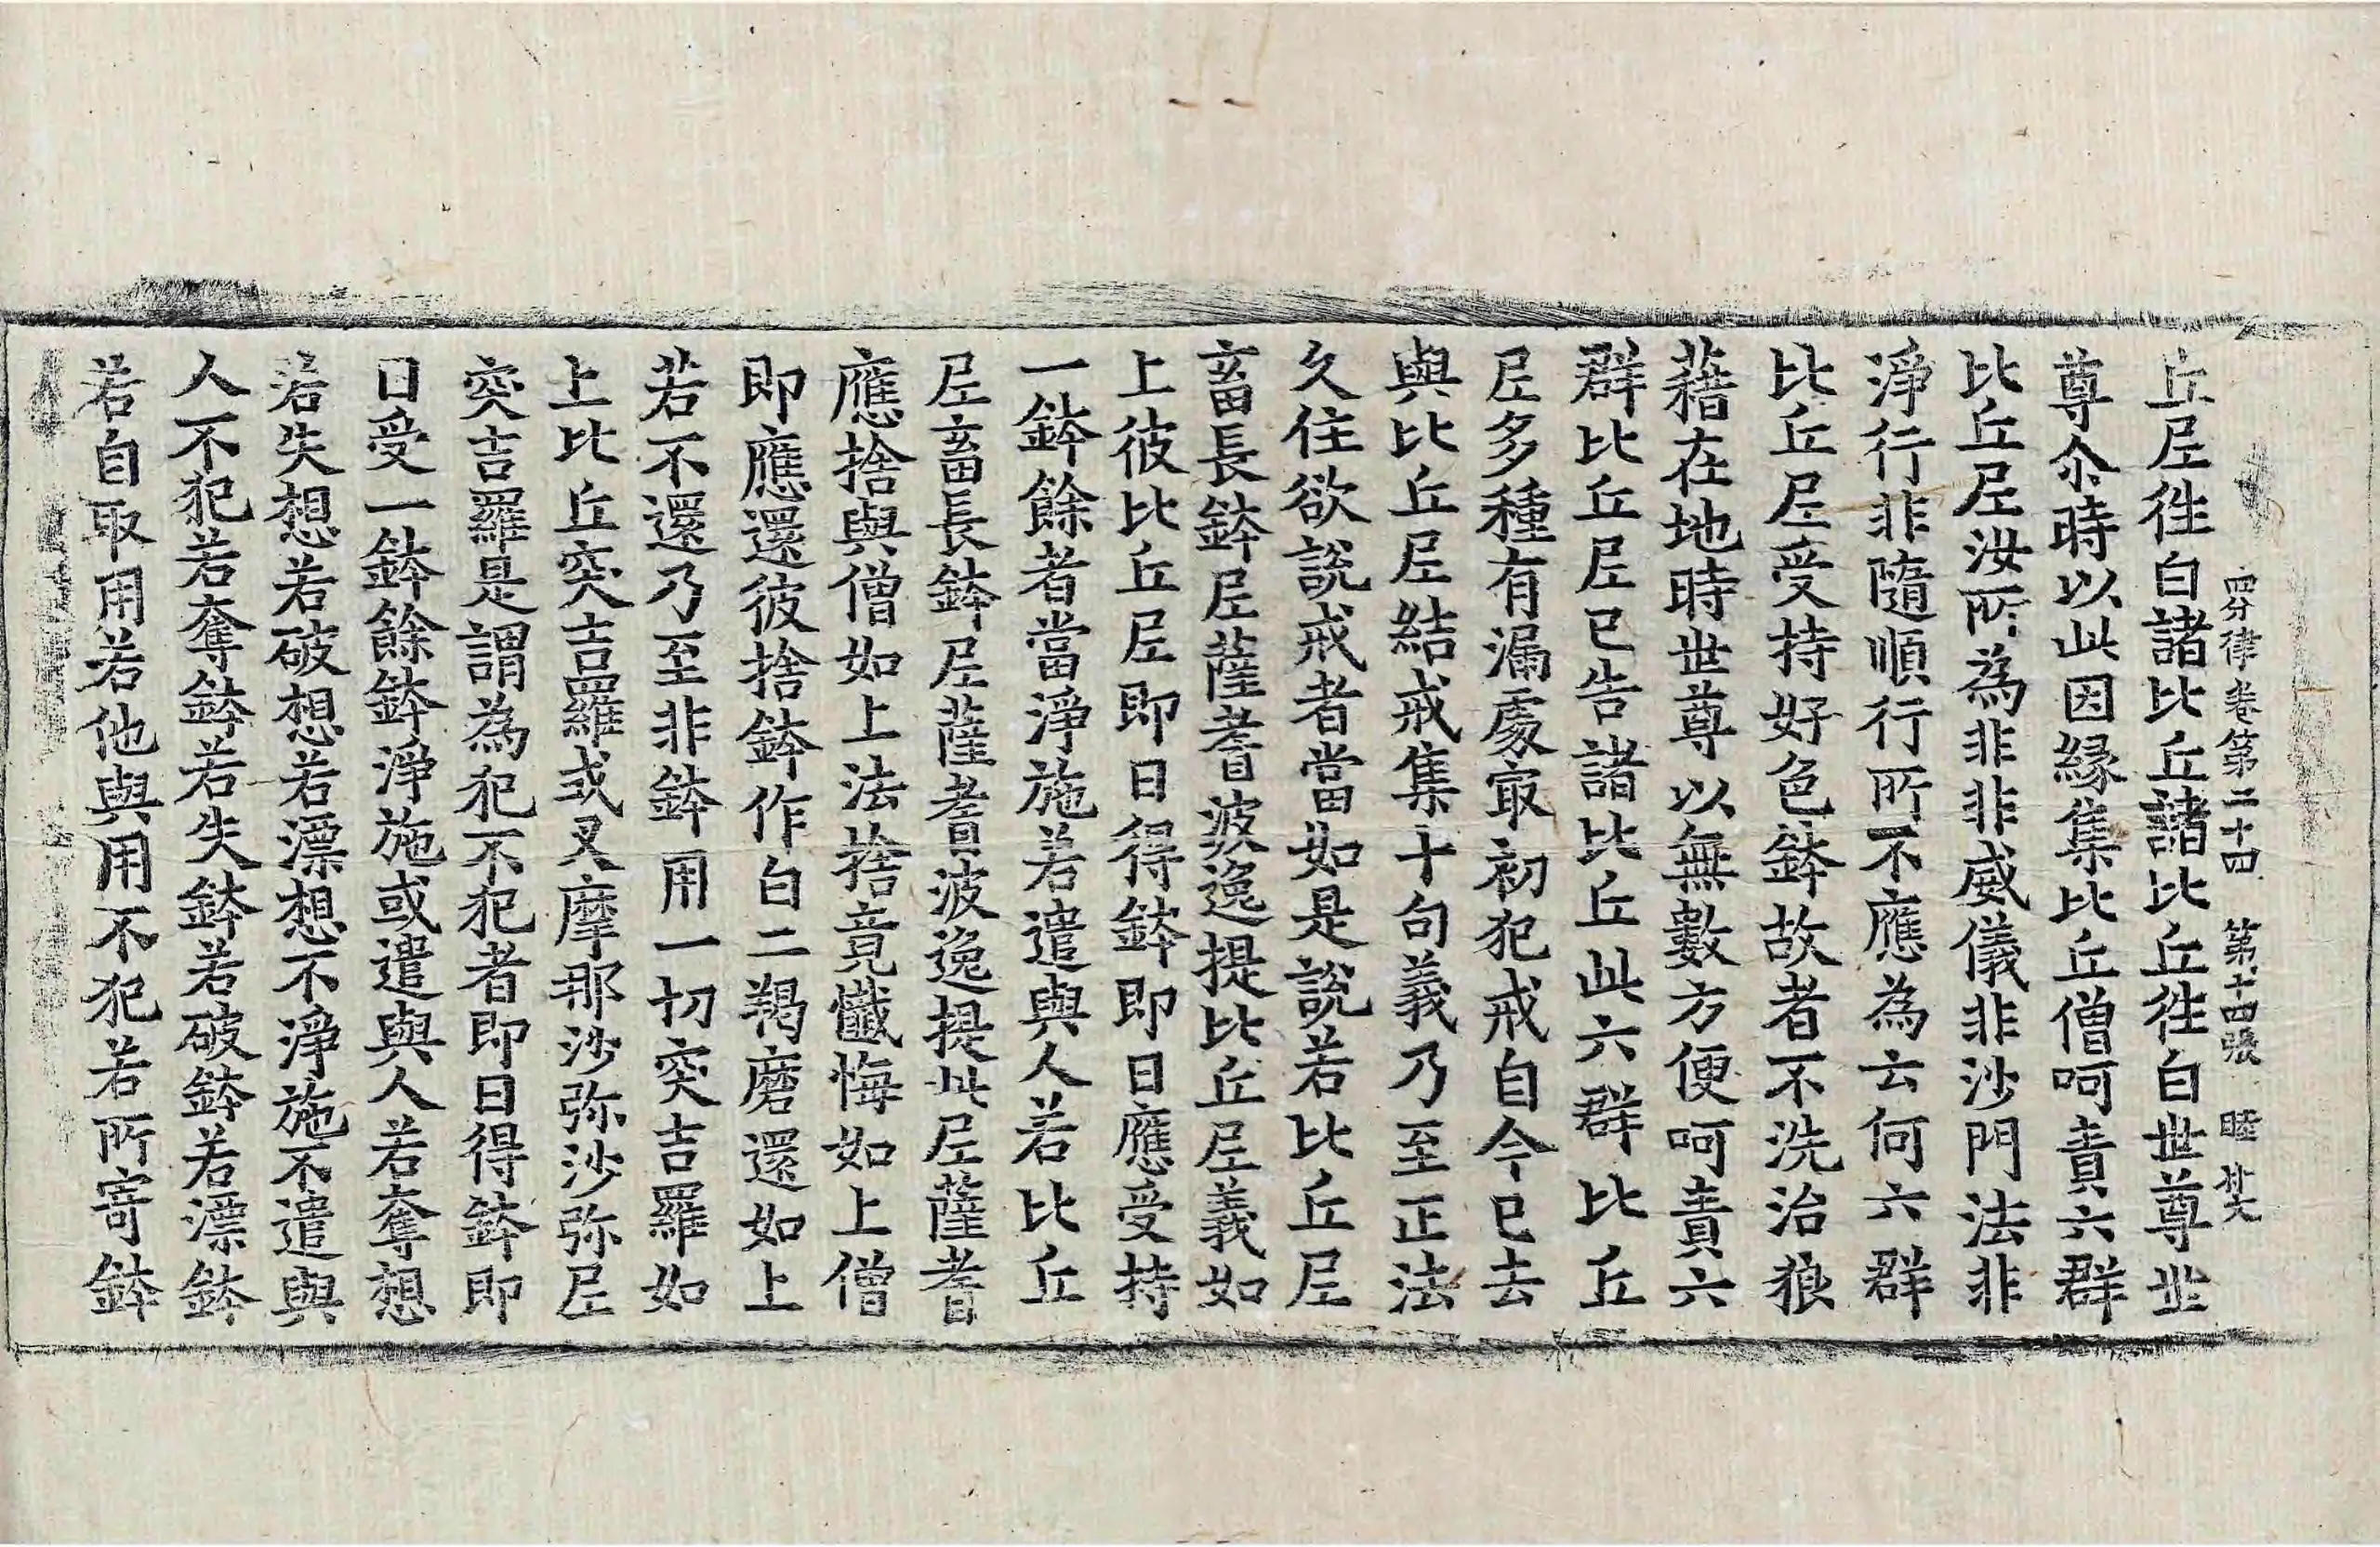 四分律卷第二十四 第十四張 睦
丘尼徃白諸比丘諸比丘徃白世尊世
尊尒時以此因縁集比丘僧呵責六群
比丘尼汝所為非非威儀非沙門法非
淨行非隨順行所不應為云何六群
比丘尼受持好色鉢故者不洗治狼
藉在地時世尊以無數方便呵責六
群比丘尼已告諸比丘此六群比丘
尼多種有漏處㝡初犯戒自今已去
與比丘尼結戒集十句義乃至正法
久住欲說戒者當如是說若比丘尼
畜長鉢尼薩耆波逸提比丘尼義如
上彼比丘尼即日得鉢即日應受持
一鉢餘者當淨施若遣與人若比丘
尼畜長鉢尼薩耆波逸提此尼薩耆
應捨與僧如上法捨竟懺悔如上僧
即應還彼捨鉢作白二羯磨還如上
若不還乃至非鉢用一切突吉羅如
上比丘突吉羅或叉摩那沙弥沙弥尼
突吉羅是謂為犯不犯者即日得鉢即
日受一鉢餘鉢淨施或遣與人若奪想
若失想若破想若漂想不淨施不遣與
人不犯若奪鉢若失鉢若破鉢若漂鉢
若自取用若他與用不犯若所寄鉢